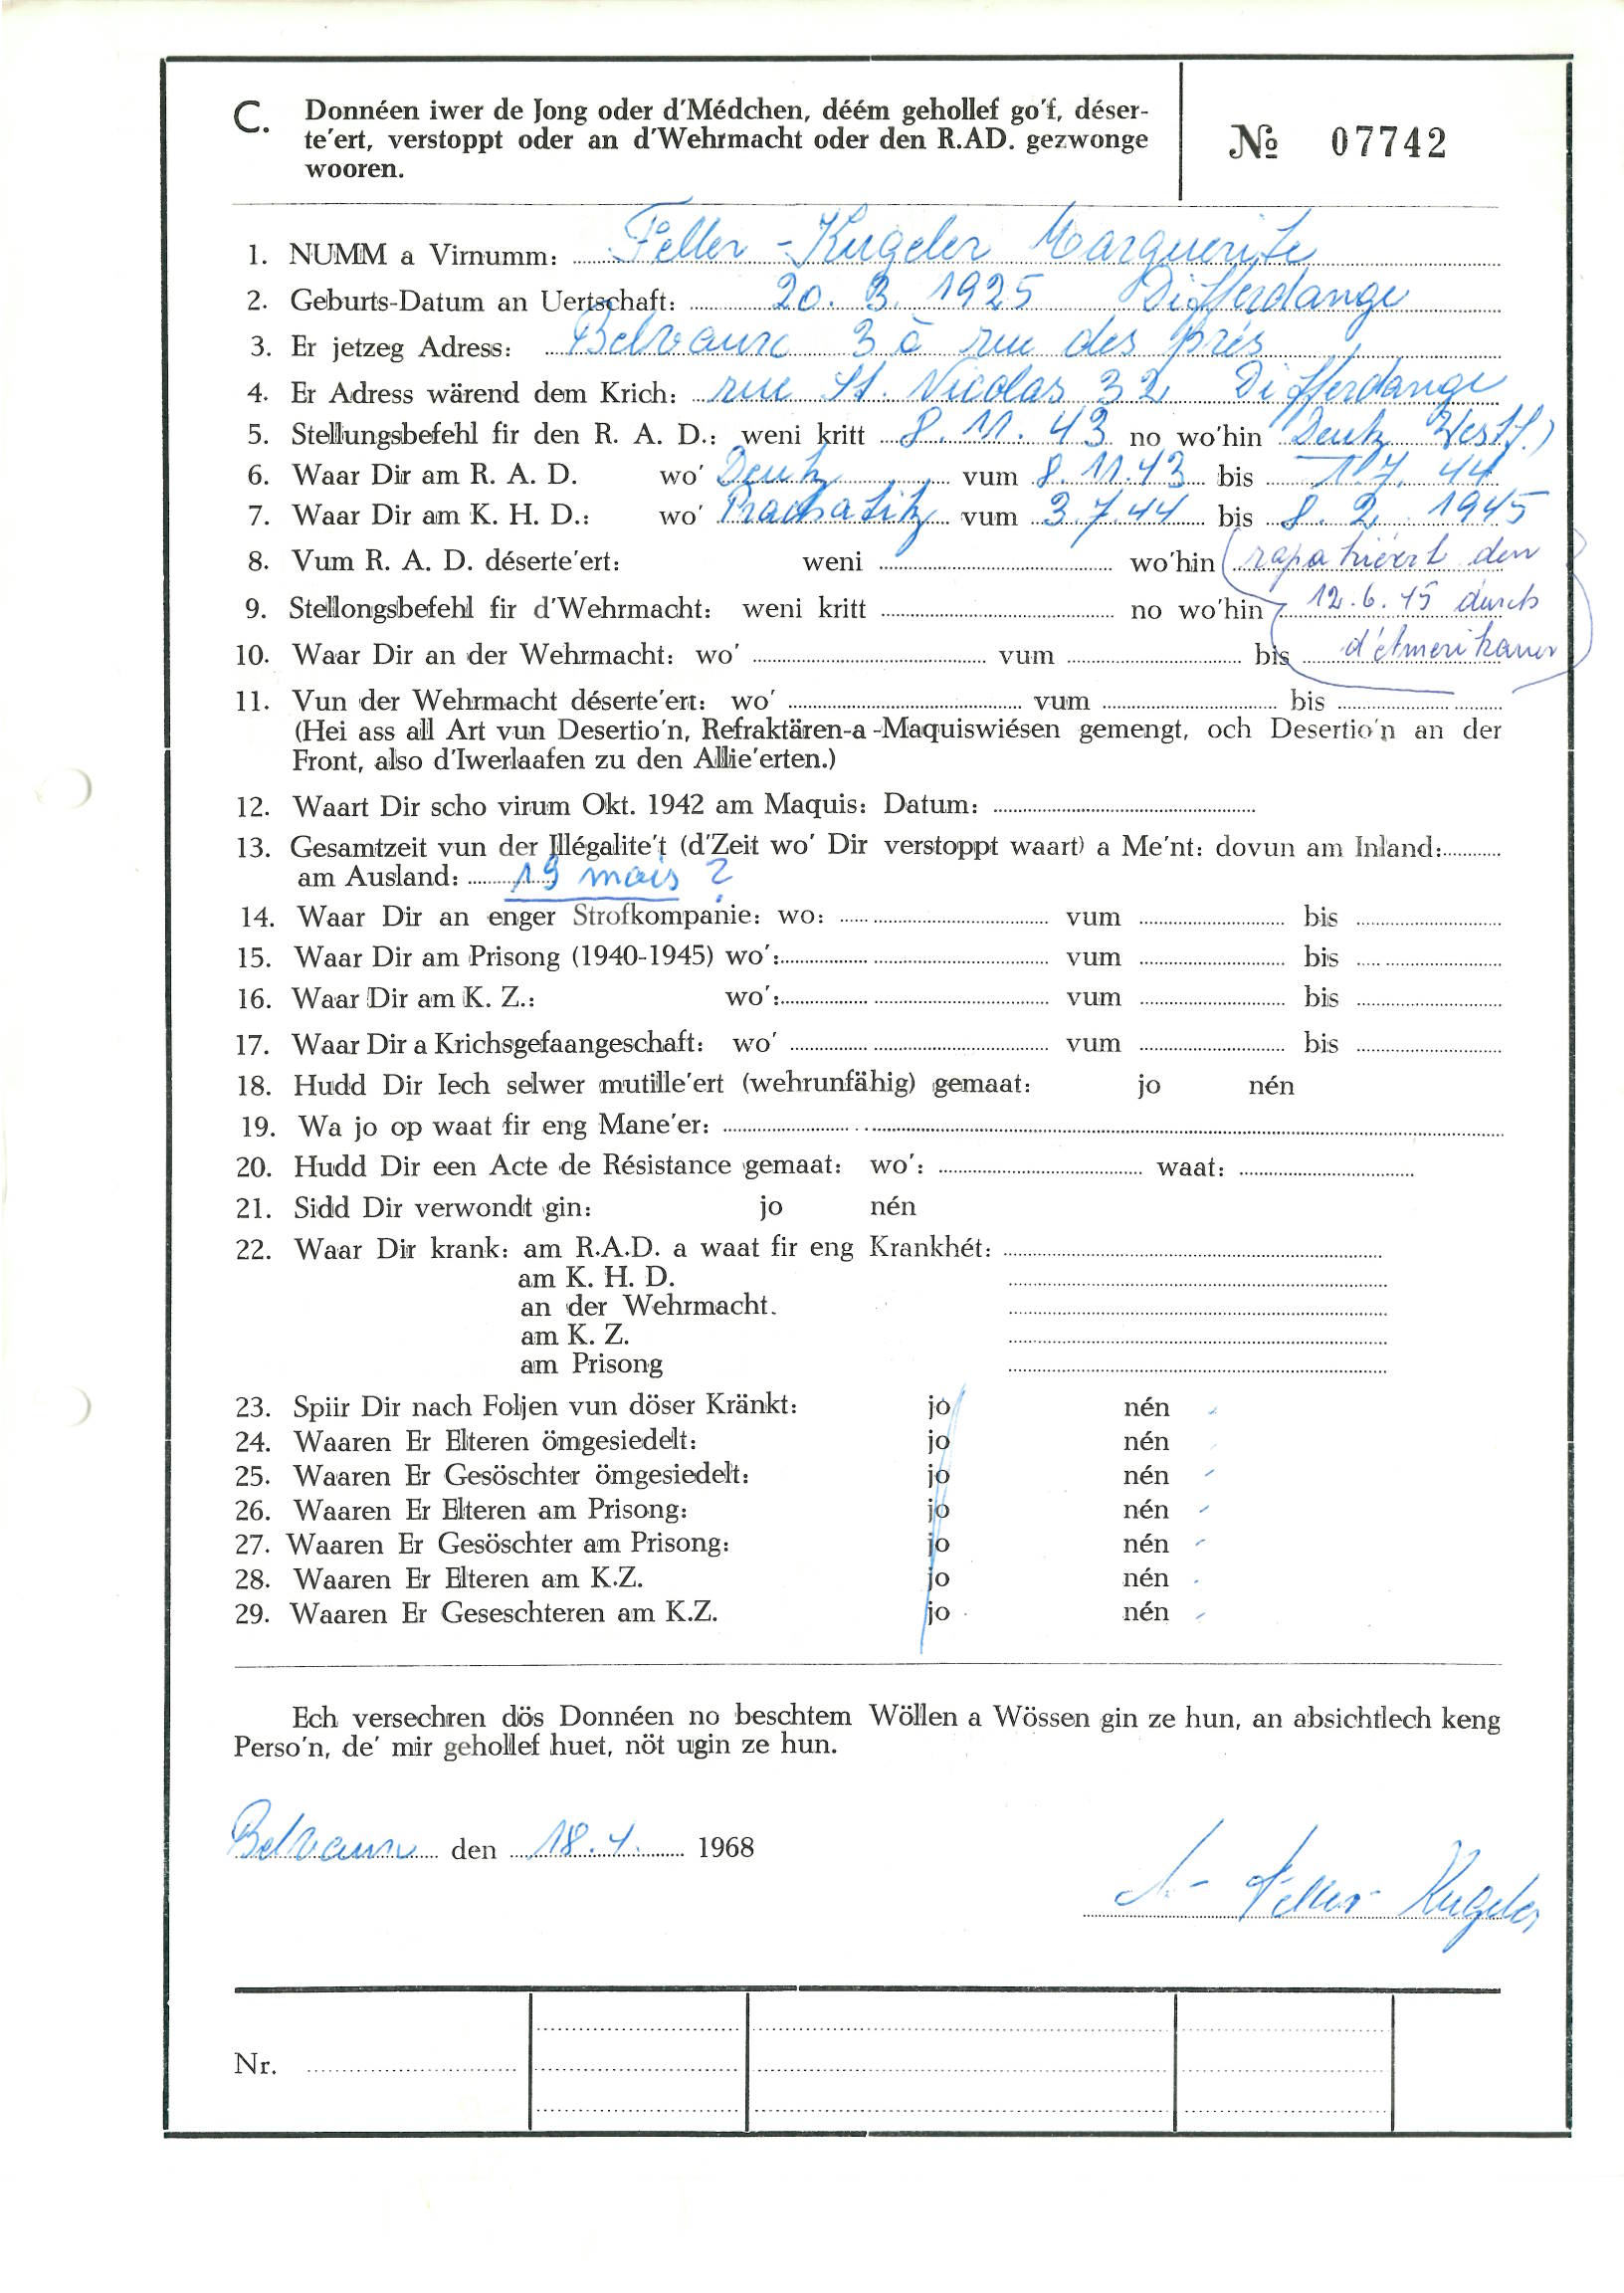 C. Donnéen iwer de Jong oder d'Médchen, déém gehollef go'f, déser-
te'ert, verstoppt oder an d'Wehrmacht oder den R.AD. gezwonge
wooren.
№ 07742
1. NUMM a Virnumm: Feller - Kugeler Marguerite
2. Geburts-Datum an Uertschaft: 20. 3. 1925 Differdange
3. Er jetzeg Adress: Belvaux 3 a rue des prés
4. Er Adress wärend dem Krich: rue St. Nicolas 32 Differdange
5. Stellungsbefehl fir den R. A. D.: weni kritt 8. 11. 43 no wo'hin Deutz Westf.)
6. Waar Dir am R. A. D. wo' Deutz vum 8. 11. 43 bis 1. 7. 44
7. Waar Dir am K. H. D.: wo' Prachatitz vum 3. 7. 44 bis 8. 2. 1945
8. Vum R. A. D. déserte'ert: weni wo'hin (rapatriéert den
9. Stellongsbefehl fir d'Wehrmacht: weni kritt no wo'hin 12. 6. 45 durch
10. Waar Dir an der Wehrmacht: wo' vum bis d'Amerikaner
11. Vun der Wehrmacht déserte'ert: wo' vum bis
(Hei ass all Art vun Desertio'n, Refraktären-a-Maquiswiésen gemengt, och Desertio'n an der
Front, also d'Iwerlaafen zu den Allie'erten.)
12. Waart Dir scho virum Okt. 1942 am Maquis: Datum:
13. Gesamtzeit vun der Illégalite't (d'Zeit wo' Dir verstoppt waart) a Me'nt: dovun am Inland:
am Ausland: 19 mois ?
14. Waar Dir an enger Strofkompanie: wo: vum bis
15. Waar Dir am Prisong (1940-1945) wo': vum bis
16. Waar Dir am K. Z.: wo': vum bis
17. Waar Dir a Krichsgefaangeschaft: wo' vum bis
18. Hudd Dir Iech selwer mutille'ert (wehrunfähig) gemaat: jo nén
19. Wa jo op waat fir eng Mane'er:
20. Hudd Dir een Acte de Résistance gemaat: wo': waat:
21. Sidd Dir verwondt gin: jo nén
22. Waar Dir krank: am R.A.D. a waat fir eng Krankhét:
am K. H. D.
an der Wehrmacht.
am K. Z.
am Prisong
23. Spiir Dir nach Foljen vun döser Kränkt: jo nén
24. Waaren Er Elteren ömgesiedelt: jo nén
25. Waaren Er Gesöschter ömgesiedelt: jo nén
26. Waaren Er Elteren am Prisong: jo nén
27. Waaren Er Gesöschter am Prisong: jo nén
28. Waaren Er Elteren am K.Z. jo nén
29. Waaren Er Geseschteren am K.Z. jo nén
Ech versechren dös Donnéen no beschtem Wöllen a Wössen gin ze hun, an absichtlech keng
Perso'n, de' mir gehollef huet, nöt ugin ze hun.
Belvaux den 18. 4. 1968
Feller Kugeler
Nr.